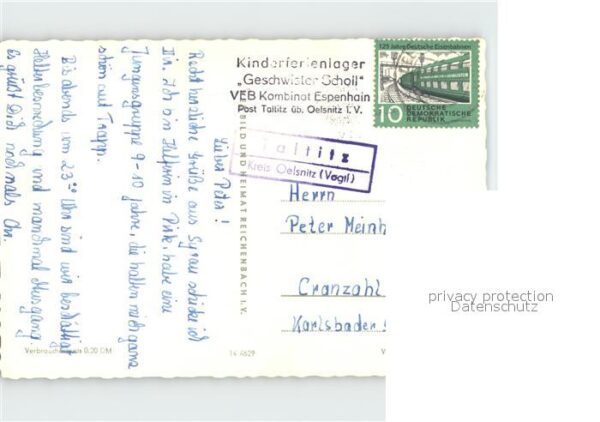 Kinderferienlager
„Geschwister Scholl"
VEB Kombinat Espenhain
Post Taltitz üb. Oelsnitz i. V.
125 Jahre Deutsche Eisenbahnen
10
DEUTSCHE
DEMOKRATISCHE
REPUBLIK
Taltitz
Kreis Oelsnitz (Vogtl)
BILD UND HEIMAT REICHENBACH I. V.
Lieber Peter!
Recht herzliche Grüße aus Syrau schickt dir
Ich bin Helferin in Pirk, habe eine
Jungengruppe 9-10 Jahre, die halten mich ganz
schön auf Trapp.
Bis abends um 23⁰⁰ Uhr sind wir beschäftigt
Helferbesprechung und manchmal
Es grüßt Dich nochmals Chr.
Herrn
Peter Meinh
Cranzahl
Karlsbader
Verbraucherpreis 0,20 DM
14 A629
V
privacy protection
Datenschutz